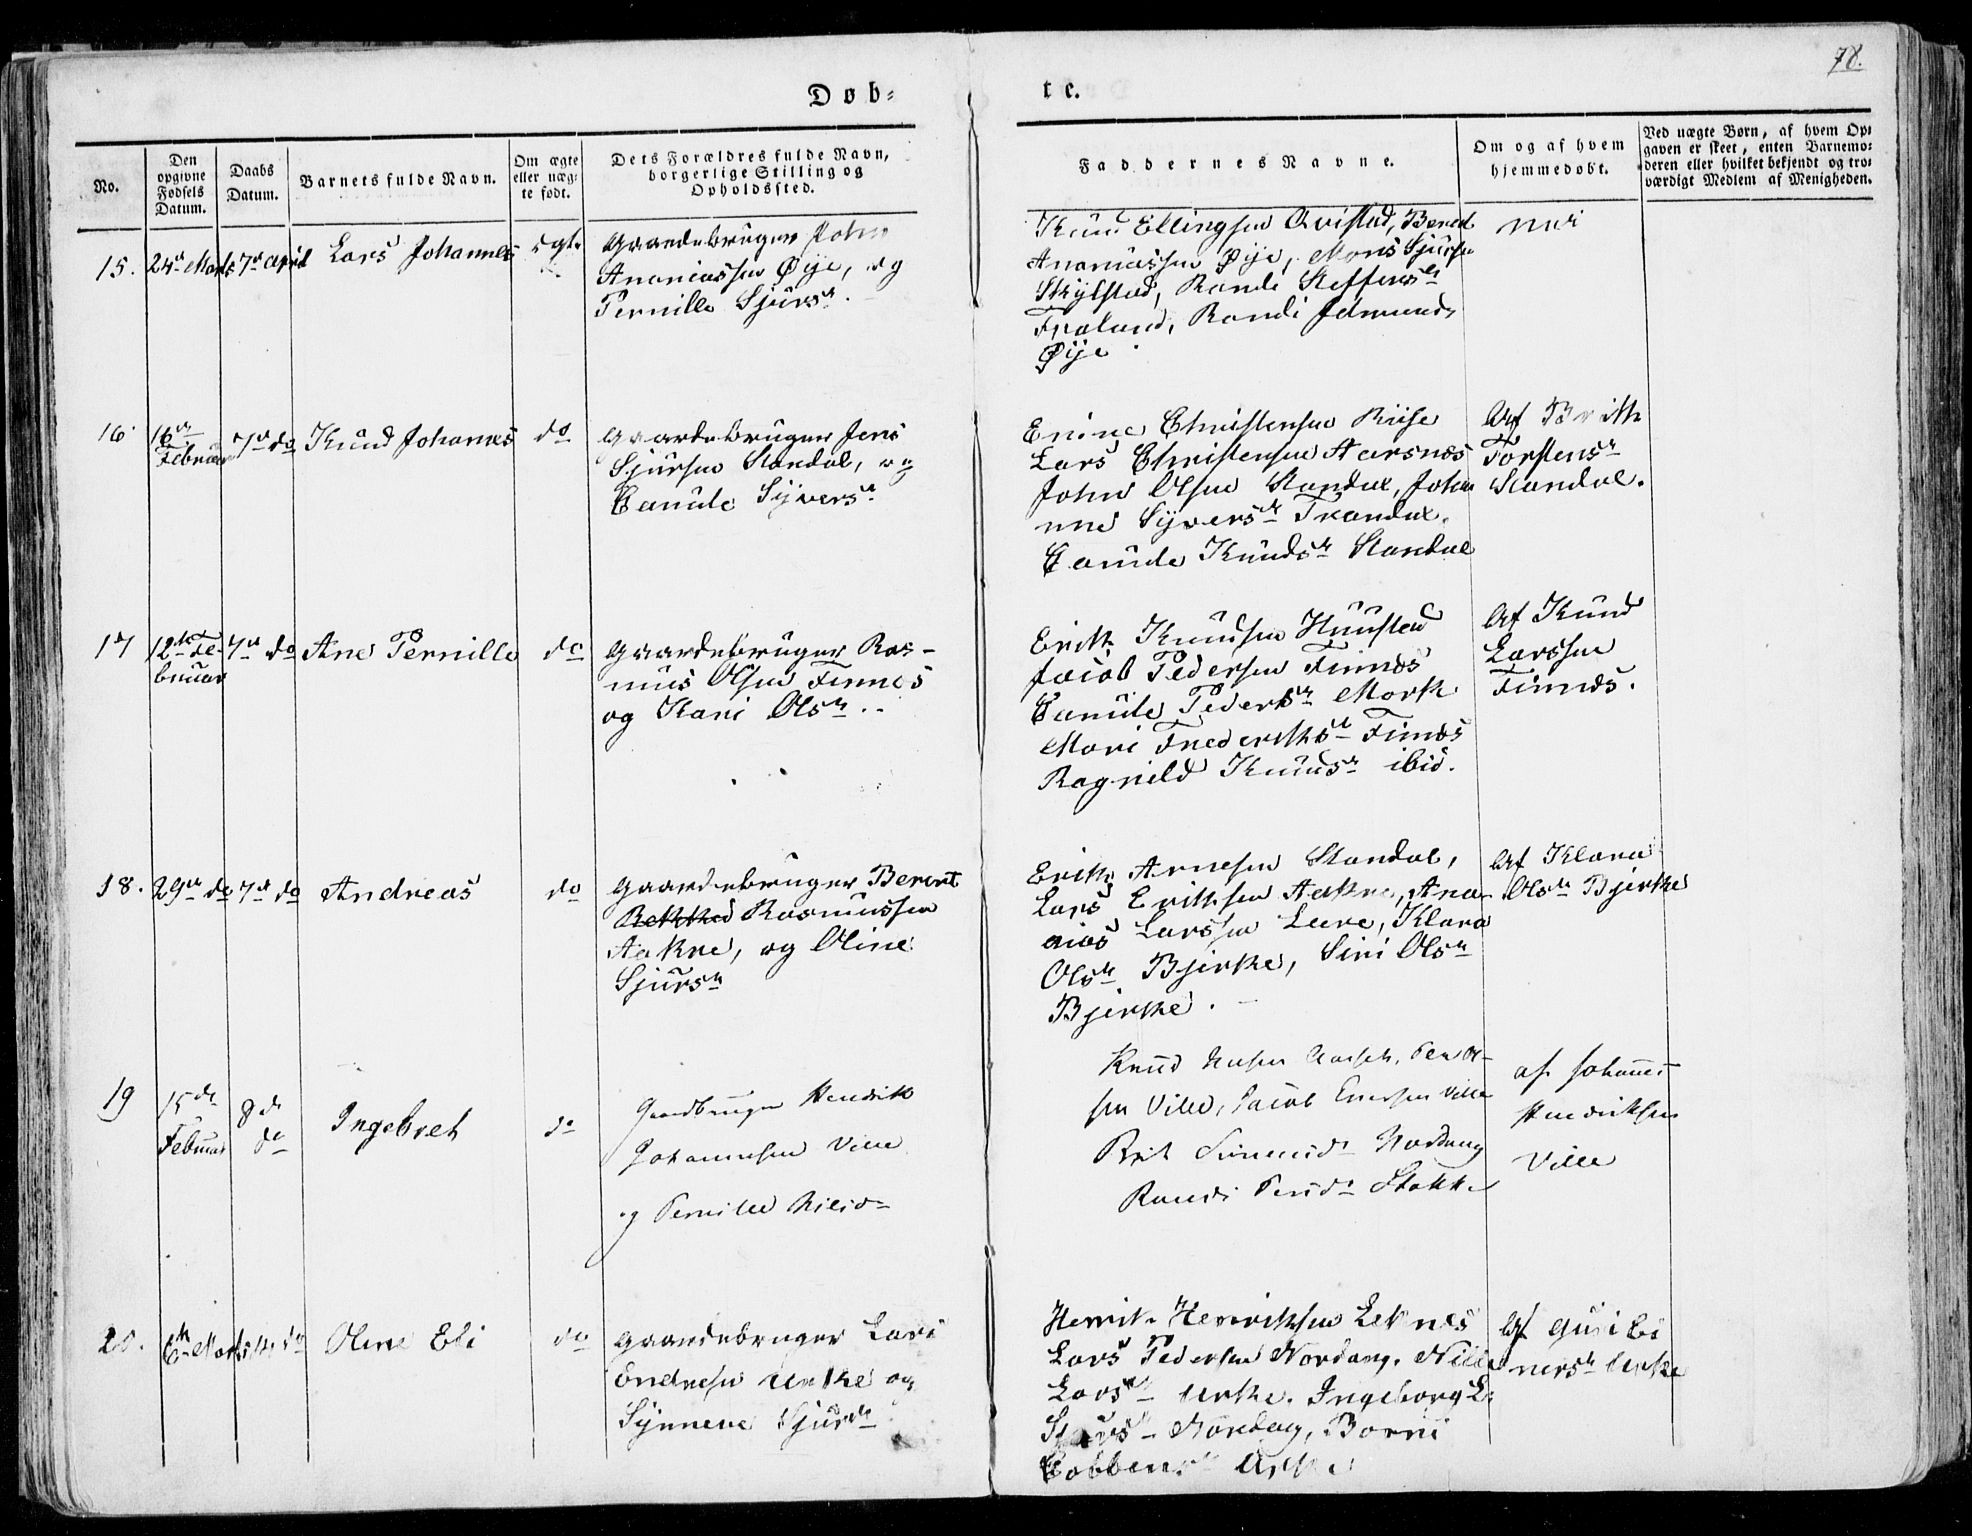 78.
Døb-
te.
No.
Den opgivne Fødsels Datum.
Daabs Datum.
Barnets fulde Navn.
Om ægte eller uægte født.
Dets Forældres fulde Navn, borgerlige Stilling og Opholdssted.
Faddernes Navne.
Om og af hvem hjemmedøbt.
Ved uægte Børn, af hvem Op-
gaven er skeet, enten Barnemo-
deren eller hvilket bekjendt og tro-
værdigt Medlem af Menigheden.
15. 24de Marts 7de April Lars Johannes ægte
Gaardebruger John
Ananiassen Øye, og
Pernille Sjursdr.
Knud Ellingsen Qvistad, Bernt
Ananiassen Øye, Mons Sjursen
Skylstad, Rande Steffensdr
Fraland, Randi Edmunds
Øye.
16 16de Februar 7de do Knud Johannes do
Gaardebruger Jens
Sjursen Standal, og
Canute Syversdr.
Enine Christensen Riise
Lars Christensen Aarsnes
John Olsen Standal, Johan
nne Syversdr Trandal.
Canute Knudsdr Standal
Af Brith
Torstensdr
Standal.
17 12te Fe-
bruar 7de do Ane Pernille do
Gaardebruger Ras-
mus Olsen Finnes
og Kari Olsdr.
Erik Knudsen Hunstad
Jacob Pedersen Finnes
Canute Pedersdr Mork
Mari Frederiksdr Finnes
Ragnild Knudsdr ibid.
Af Knud
Larssen
Finnes.
18. 29de do 7de do Andreas do
Gaardebruger Berent
Rasmussen
Aakre, og Oline
Sjursdr
Erik Arnesen Standal,
Lars Eriksen Aakre, Ana-
nias Larssen Leere, Klara
Olsdr Bjerke, Siri Olsdr
Bjerke.
Af Klara
Olsdr Bjerke
19 15de Februar 8de do Ingebret do
Gaardbruger Hendrik
Johannesen Ville
og Pernille Nilsd
Knud Per Ol-
sen Ville, Jacob Ville
Brit Nordang
Randi Stokke
af Johannes
Hendriksen
Ville
20. 6te Marts do Oline Eli do
Gaardebruger Lars
Endresen Urke og
Synneve Sjursdr
Henrik Henriksen Leknes
Lars Pedersen Nordang. Nille
Larsdr Urke. Ingeborg L.
Sjursdr Nordang, Borni
Urke
Af Guri Ei
nersdr Urke